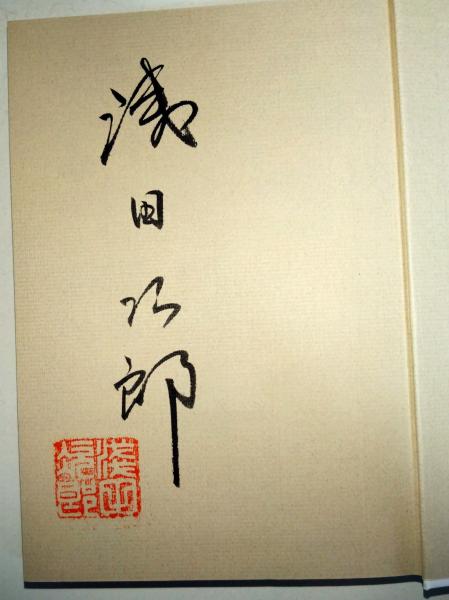 浅田次郎
浅田
次郎